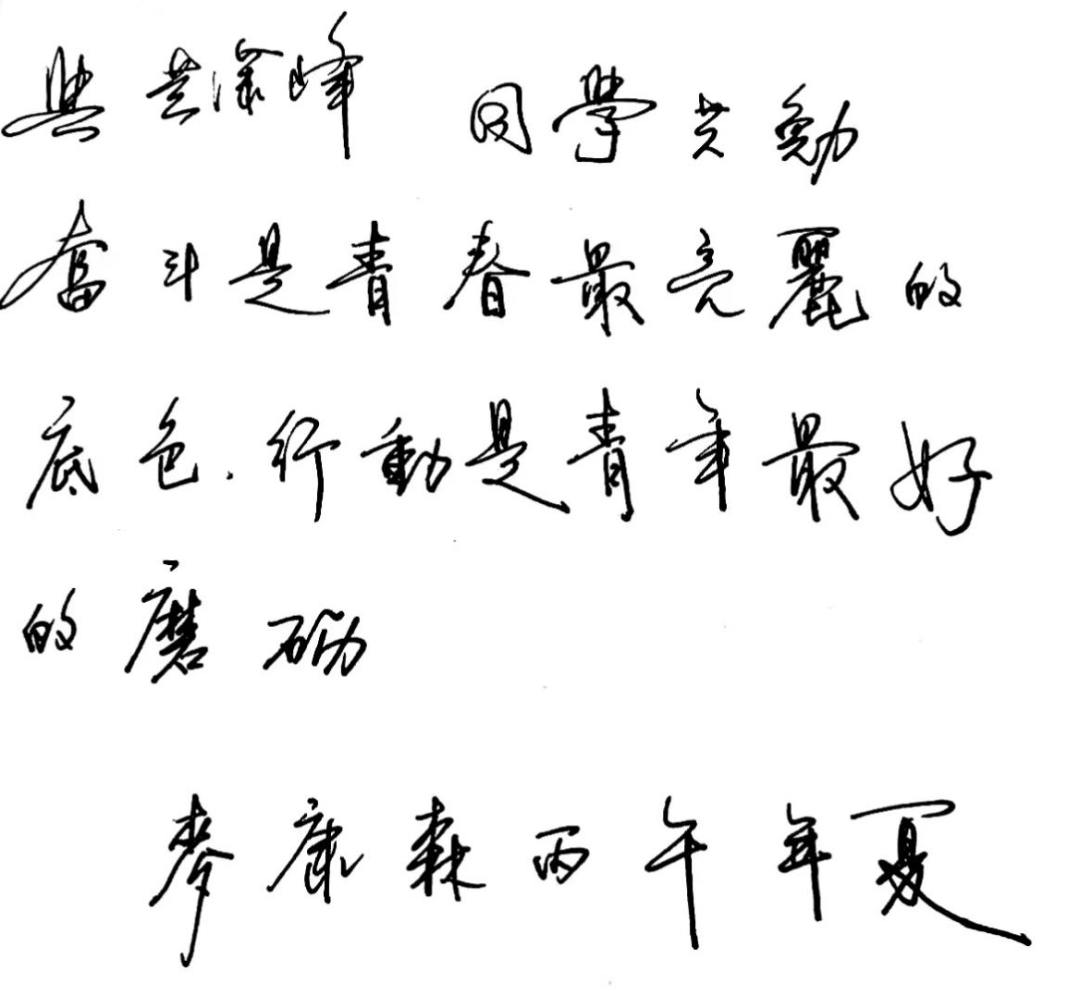 與黄深峰 同學共勉
奮斗是青春最亮麗的
底色.行動是青年最好
的磨砺
麥康森丙午年夏